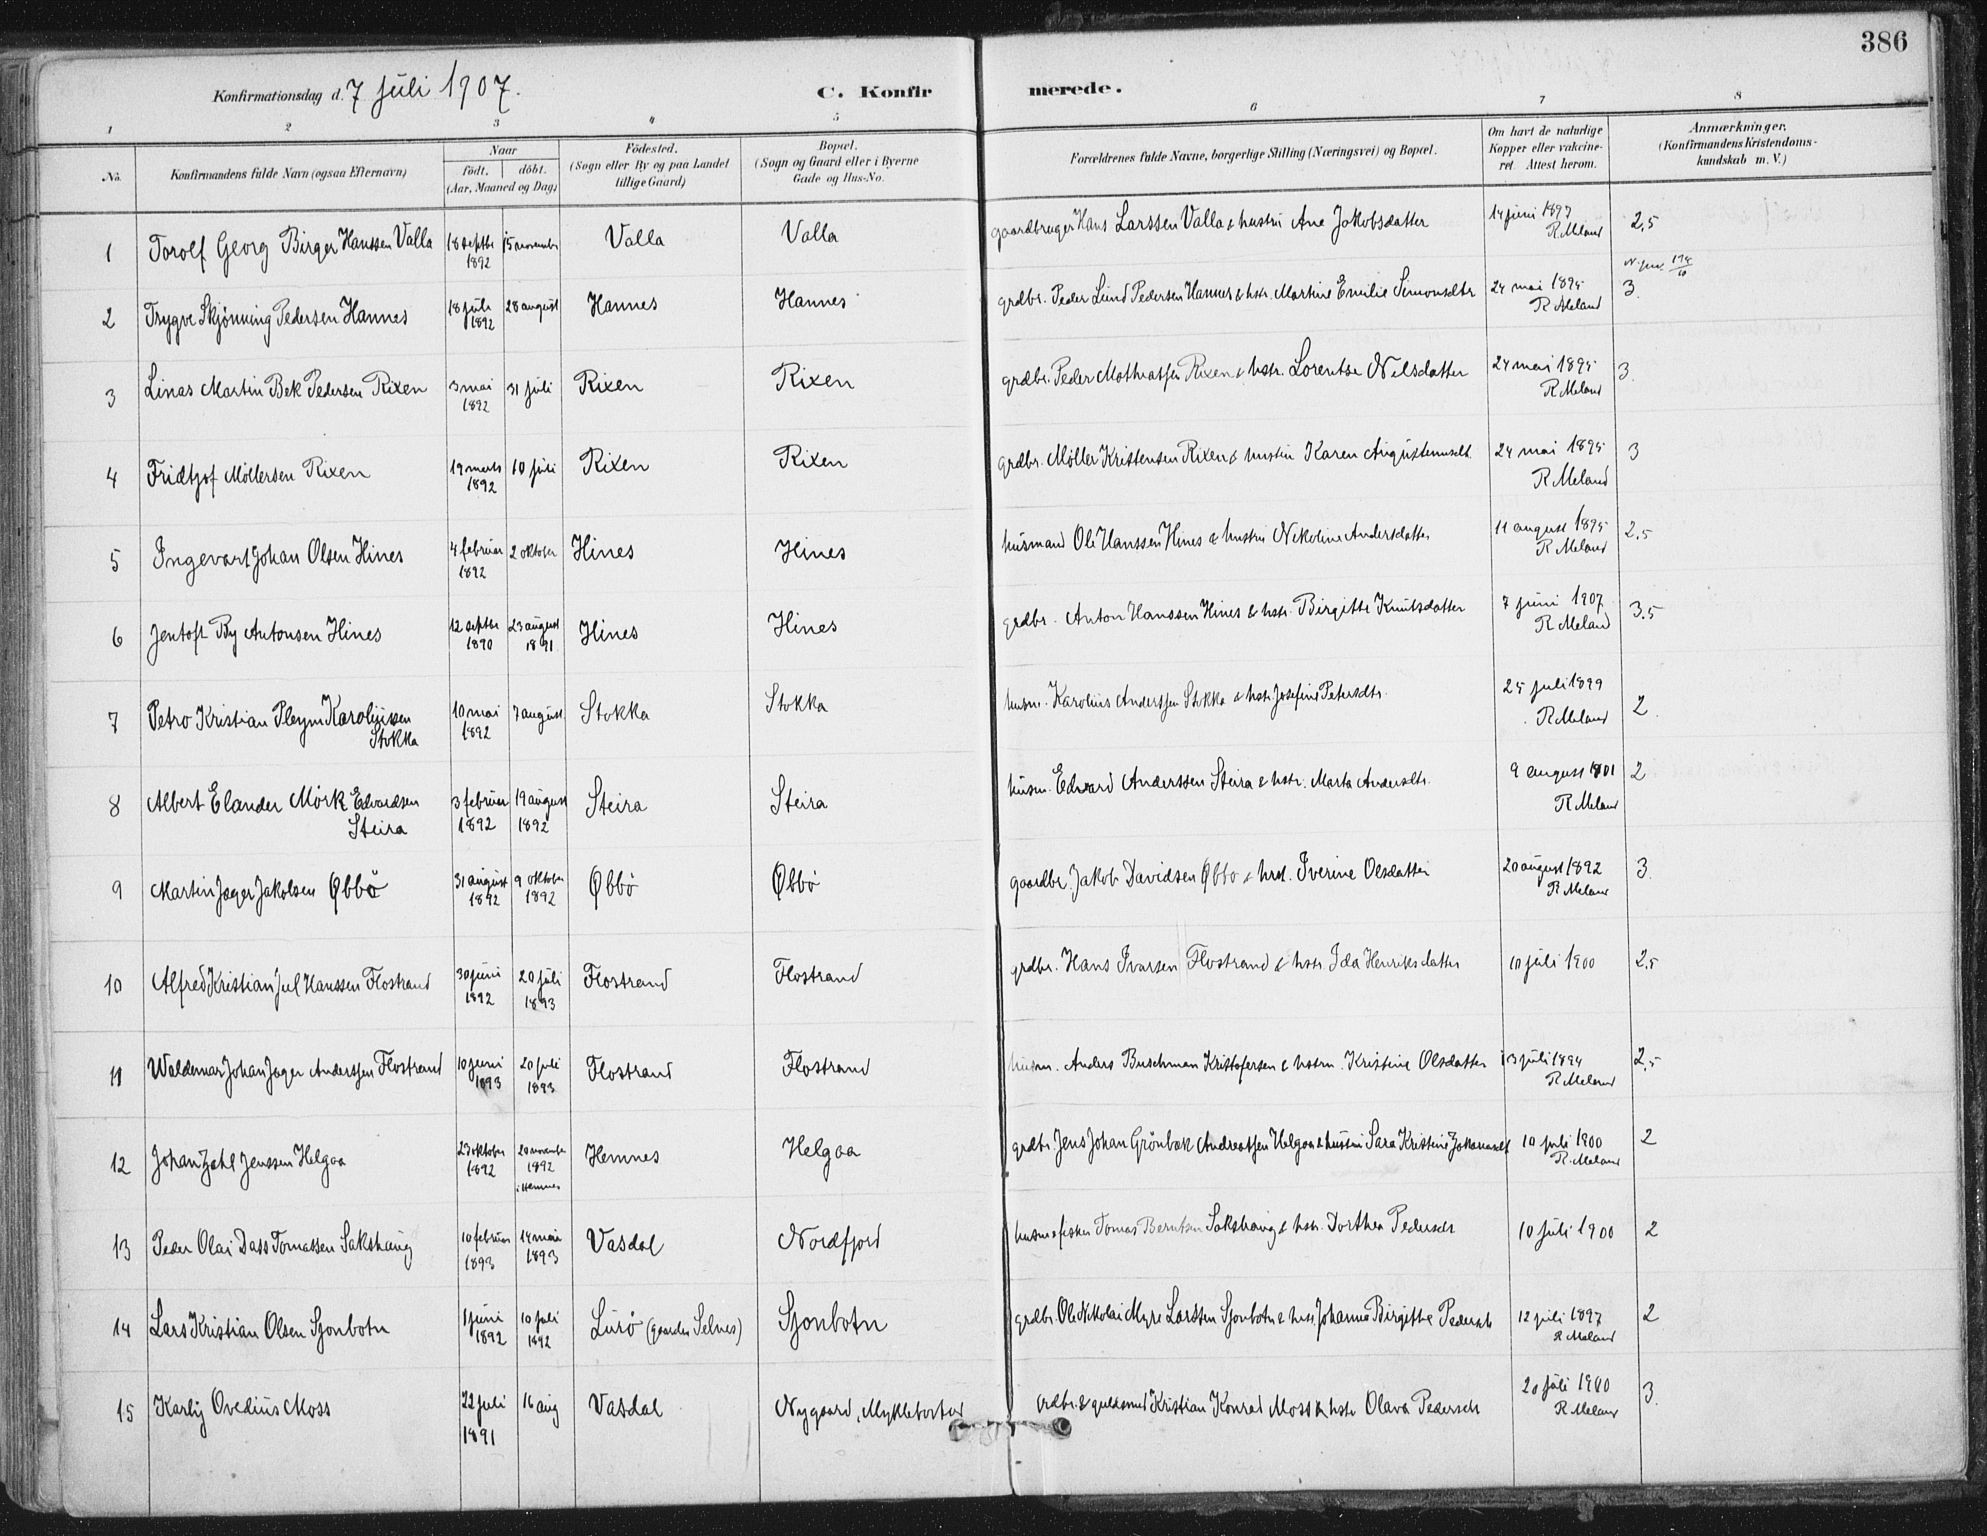 386
Konfirmationsdag d. 7 juli 1907.
C. Konfirmerede.
1 2 3 4 5 6 7 8
No.
Konfirmandens fulde Navn (ogsaa Efternavn)
Naar
födt. döbt.
(Aar, Maaned og Dag)
Födested.
(Sogn eller By og paa Landet
tillige Gaard)
Bopæl.
(Sogn og Gaard eller i Byerne
Gade og Hus-No.
Forældrenes fulde Navne, borgerlige Stilling (Næringsvei) og Bopæl.
Om havt de naturlige
Kopper eller vakcine-
ret. Attest herom.
Anmærkninger.
(Konfirmandens Kristendoms-
kundskab m. V.)
1 Torolf Georg Birger Hanssen Valla 18 septbr 1892 15 novembr Valla Valla gaardbruger Hans Larssen Valla & hustru Ane Jakobsdatter 14 juni 1897 R. Meland 2,5
2 Trygve Skjønning Pedersen Hannes 18 juli 1892 28 august Hannes Hannes grdbr. Peder Lund Pedersen Hannes & hstr. Martine Emilie Simonsdtr 24 mai 1895 R Meland 3.
3 Linas Martin Bek Pedersen Rixen 3 mai 1892 31 juli Rixen Rixen grdbr. Peder Mathiassen Rixen & hstr. Lorentse Nilsdatter 24 mai 1895 R Meland 3.
4 Fridtjof Möllersen Rixen 19 marts 1892 10 juli Rixen Rixen grdbr. Möller Kristensen Rixen & hustru Karen Augustinusdt. 24 mai 1895 R Meland 3
5 Ingevart Johan Olsen Hines 4 februar 1892 2 oktober Hines Hines husmand Ole Hanssen Hines & hustru Nikoline Andersdatter 11 august 1895 R Meland 2,5
6 Jentoft By Antonsen Hines 12 septbr 1890 23 august 1891 Hines Hines grdbr. Anton Hanssen Hines & hstr. Birgitte Knutsdatter 7 juni 1907 R Meland 3.5
7 Petro Kristian Pleym Karoliussen Stokka 10 mai 1892 7 august Stokka Stokka husm. Karolius Anderssen Stokka & hstr. Josefine Petersdtr. 25 juli 1899 R Meland 2.
8 Albert Elander Mörk Edvardsen Steira 3 februar 1892 19 august 1892 Steira Steira husm. Edvard Anderssen Steira & hstr. Marta Andersdtr. 9 august 1901 R Meland 2
9 Martin Jæger Jakobsen Øbbö 31 august 1892 9 oktober 1892 Øbbö Øbbö gaardbr. Jakob Davidsen Øbbo & hust. Iverine Olsdatter 20 august 1892 R Meland 3.
10 Alfred Kristian Jul Hanssen Flostrand 30 juni 1892 20 juli 1893 Flostrand Flostrand grdbr. Hans Ivarsen Flostrand & hstr. Ida Henriksdatter 10 juli 1900 2,5
11 Waldemar Johan Jæger Anderssen Flostrand 10 juni 1893 20 juli 1893 Flostrand Flostrand husm. Anders Buschman Kristofersen & hstru. Kristine Olsdatter 13 juli 1894 R Meland 2,5
12 Johan Zahl Jenssen Helgaa 23 oktober 1892 20 novembr 1892 i Hemnes Hemnes Helgaa grdbr. Jens Johan Grönbæk Andreassen Helgaa & hustru Sara Kristine 10 juli 1900 R. Meland 2
13 Peder Olai Dass Tomassen Sakshaug 10 februar 1893 14 mai 1893 Vasdal Nordfjord husm & fisker Tomas Berntsen Sakshaug & hstr. Dorthea Pedersdt 10 juli 1900 2
14 Lars Kristian Olsen Sjonbotn 1 juni 1892 10 juli 1892 Lurö (gaarden Selnes) Sjonbotn grdbr. Ole Nikolai Myre Larssen Sjonbotn & hstr. Johanna Birgitte Pedersdt 12 juli 1897 R Meland 2
15 Karly Ovedius Moss 22 juli 1891 16 aug Vasdal Nygaard, Myklebostad grdbr. & guldsmed Kristian Konrad Moss & hstr Olava Pedersdt 20 juli 1900 R Meland 3.